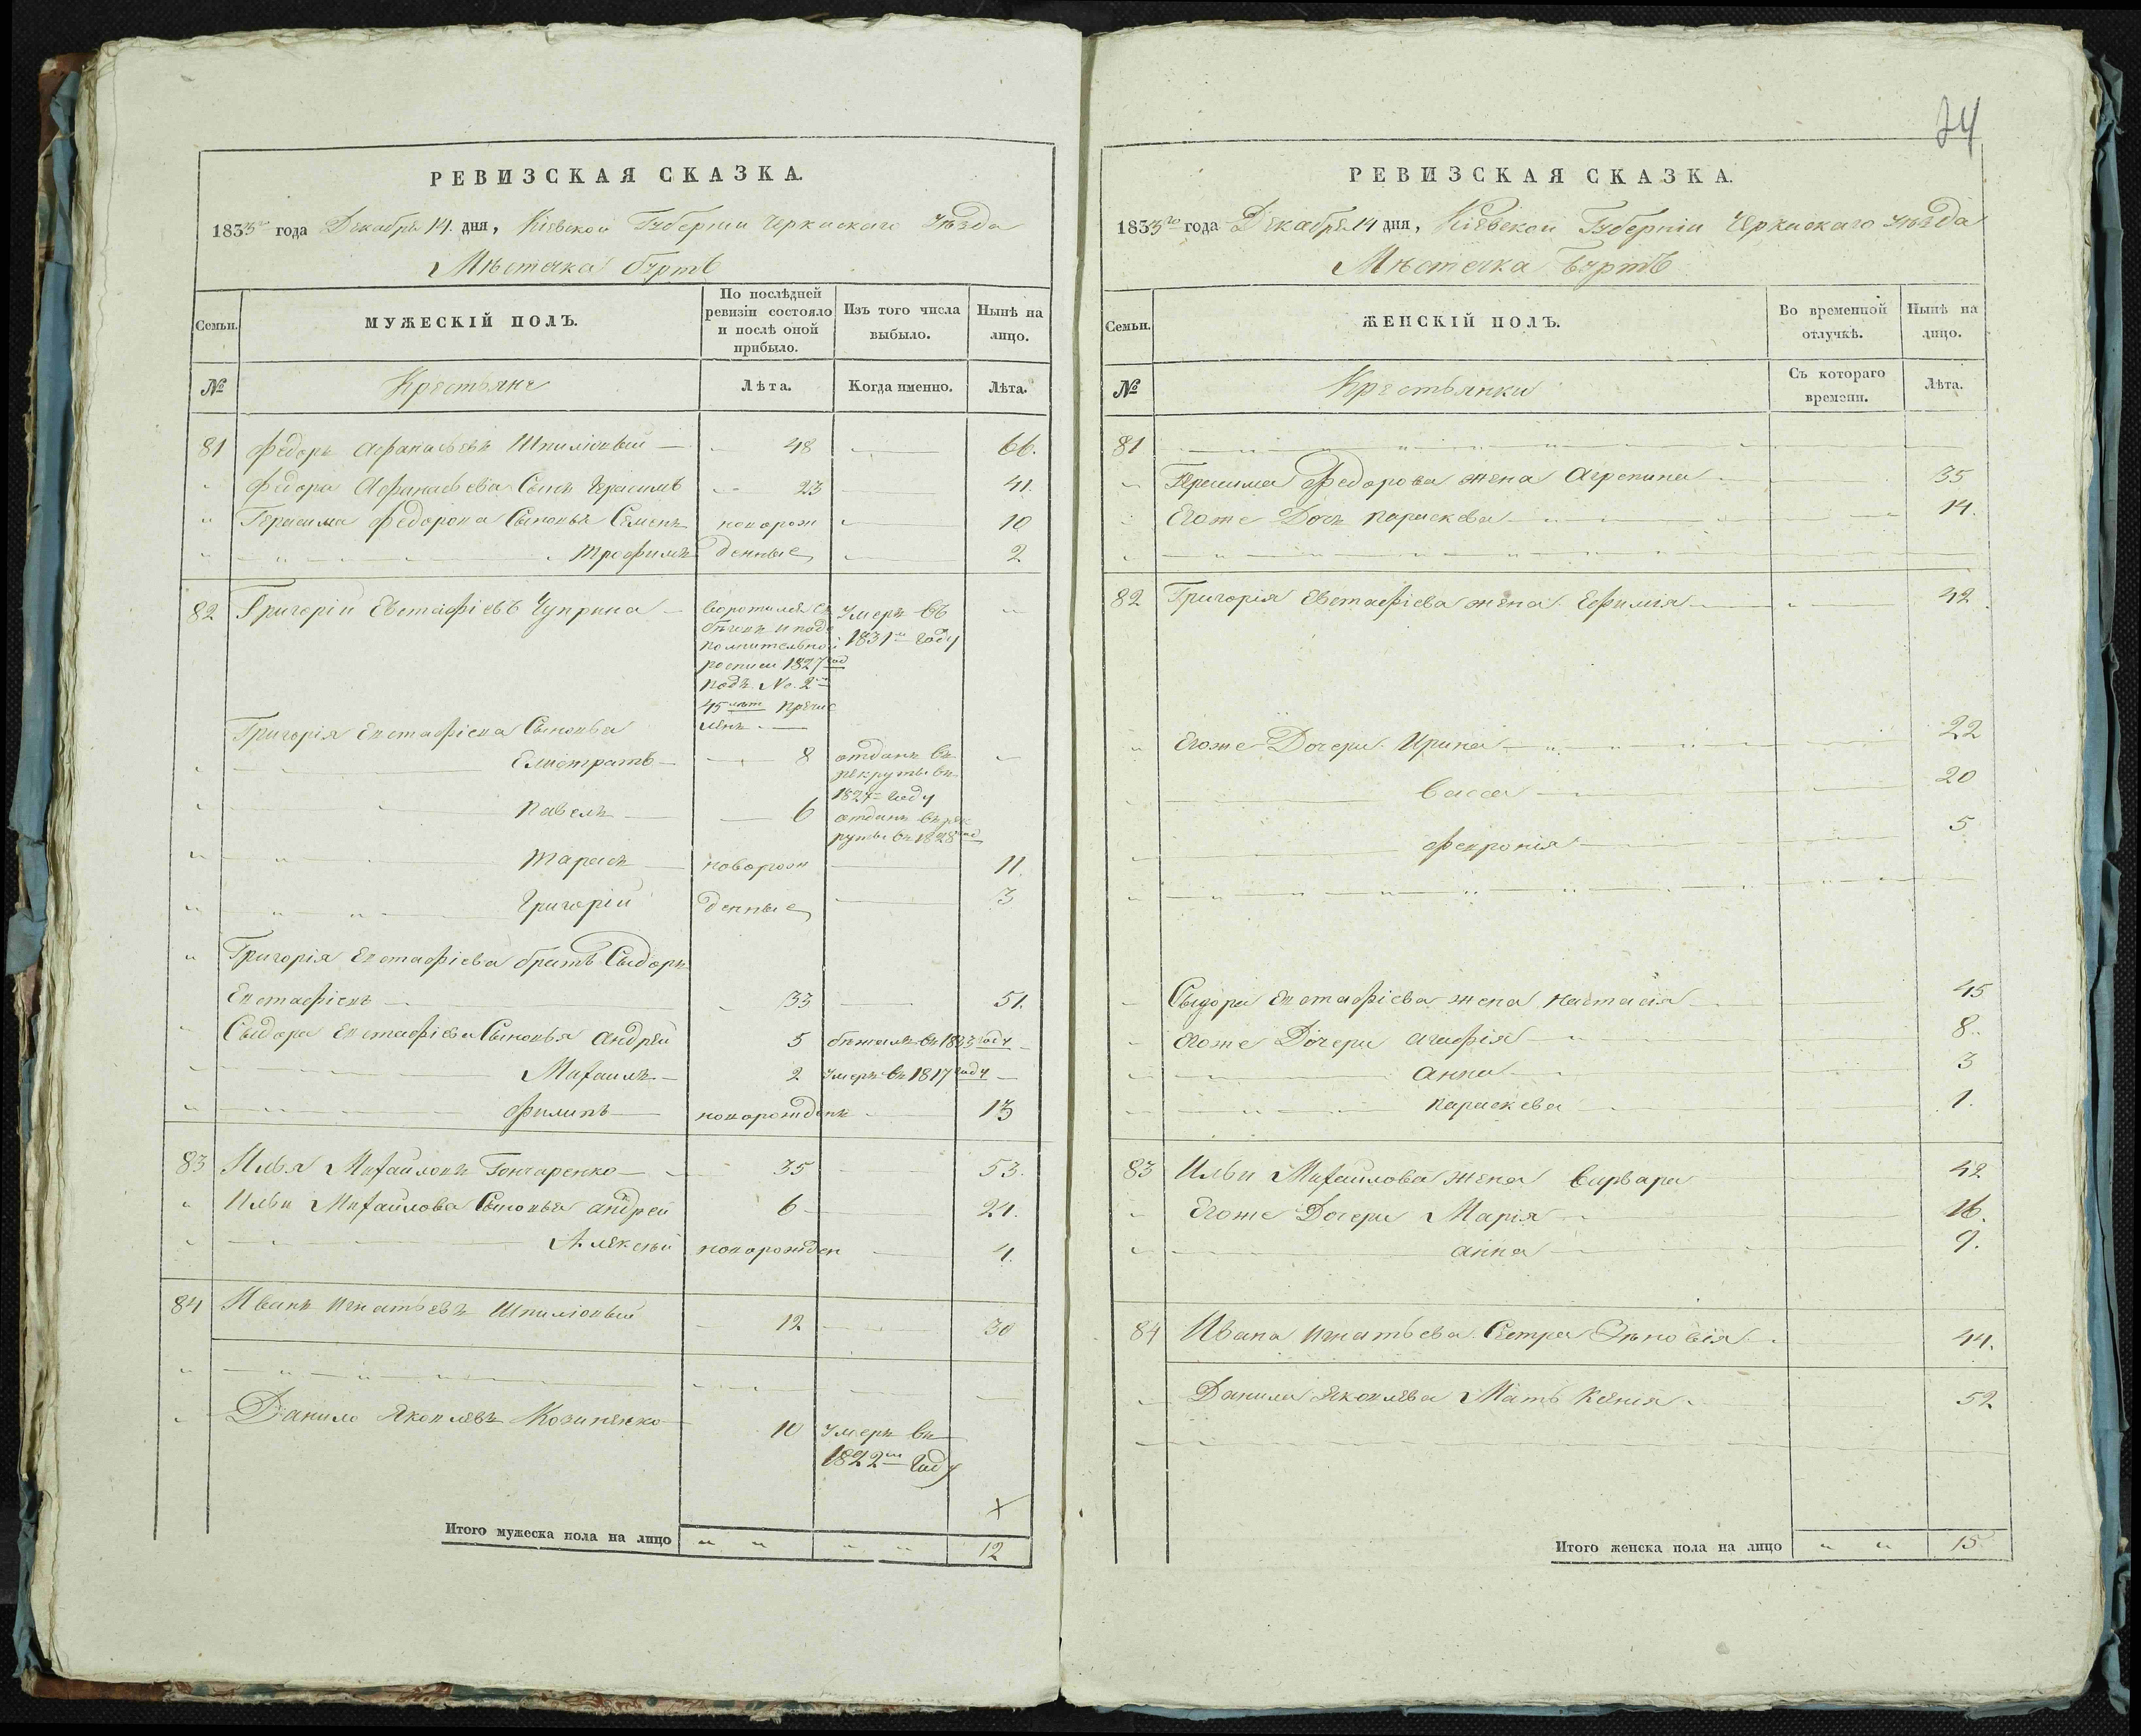 РЕВИЗСКАЯ СКАЗКА.
1833го года Декабря 14. дня, Кіевской Губерніи Черкаскаго Уѣзда
Мѣстечка Буртъ
Семьи.
МУЖЕСКІЙ ПОЛЪ.
По послѣдней ревизіи состояло и послѣ оной прибыло.
Изъ того числа выбыло.
Нынѣ на лицо.
№
Крестьяне
Лѣта.
Когда именно.
Лѣта.
81 Федоръ Афанасьевъ Шпилювый 48 66.
Федора Афанасьева Сынъ Герасимъ 23 41.
Герасима Федорова Сыновья Семенъ новорож 10
Трофимъ денные 2
82 Григорій Евстафіевъ Чуприна
воротился съ
бѣговъ и по до
полнительной
росписи 1827 год
подъ No. 2
45 лѣт причис
ленъ
Умеръ въ
1831м году
Григорія Евстафіева Сыновья
Елистратъ 8 отданъ въ
рекруты въ
1827 году
Павелъ 6 отданъ въ рек
руты въ 1828 год
Тарасъ новорож 11.
Григорій денные 3
Григорія Евстафіева братъ Сыдоръ
Евстафіевъ 33 51.
Сыдора Евстафіева Сыновья Андрей 5 бѣжалъ въ 1833 году
Михаилъ 2 умеръ въ 1817 году
Филипъ новорожденъ 13
83 Илья Михайловъ Гончаренко 35 53.
Ильи Михайлова Сыновья Андрей 6 24.
Алексѣй новорожден 4.
84 Иванъ Игнатьевъ Шпилювый 12 30
Данило Яковлевъ Козиненко 10 Умеръ въ
1822м году
Итого мужеска пола на лицо 12
24
РЕВИЗСКАЯ СКАЗКА.
1833го года Декабря 14 дня, Кіевской Губерніи Черкаскаго Уѣзда
Мѣстечка Буртъ
Семьи.
ЖЕНСКІЙ ПОЛЪ.
Во временной отлучкѣ.
Нынѣ на лицо.
№
Крестьянки
Съ котораго времени.
Лѣта.
81
Герасима Федорова жена Агрепина 35
Егоже Дочь Параскева 14.
82 Григорія Евстафіева жена Ефимія 42
Егоже Дочери Ирина 22
Васса 20
Февронія 5
Сыдора Евстафіева жена Настасія 45
Егоже Дочери Агафія 8.
Анна 3
Параскева 1.
83 Ильи Михайлова жена Варвара 42
Егоже Дочери Марія 16.
Анна 9.
84 Ивана Игнатьева Сестра Зѣновія 44.
Данила Яковлева Мать Ксенія 52
Итого женска пола на лицо 15